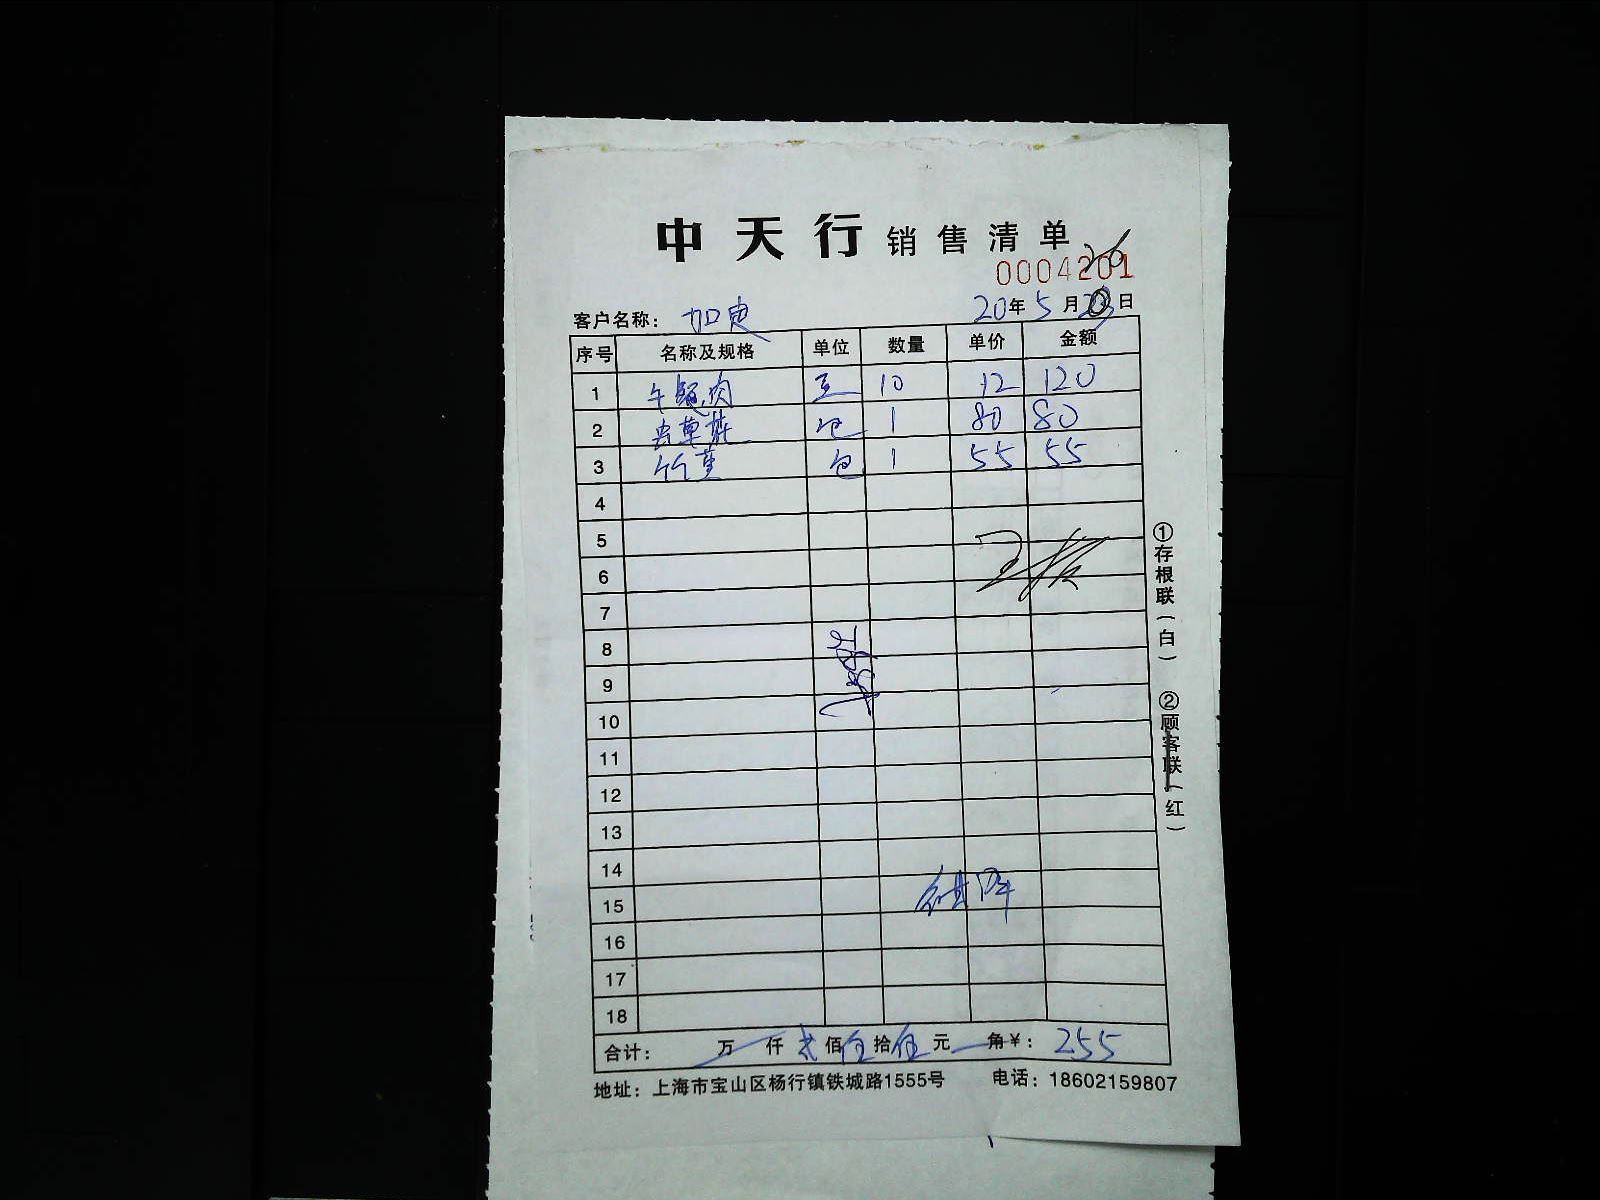 中天行 销售清单
26
0004201
客户名称: 加电 20年5月日
序号 名称及规格 单位 数量 单价 金额
1 牛腿肉 10 12 120
2 虫草花 包 1 80 80
3 竹荪 包 1 55 55
4
5
6
7
8
9
10
11
12
13
14
15
16
17
18
①存根联(白) ②顾客联(红)
合计: 万 仟 贰佰伍拾伍元 角¥: 255
地址:上海市宝山区杨行镇铁城路1555号 电话:18602159807